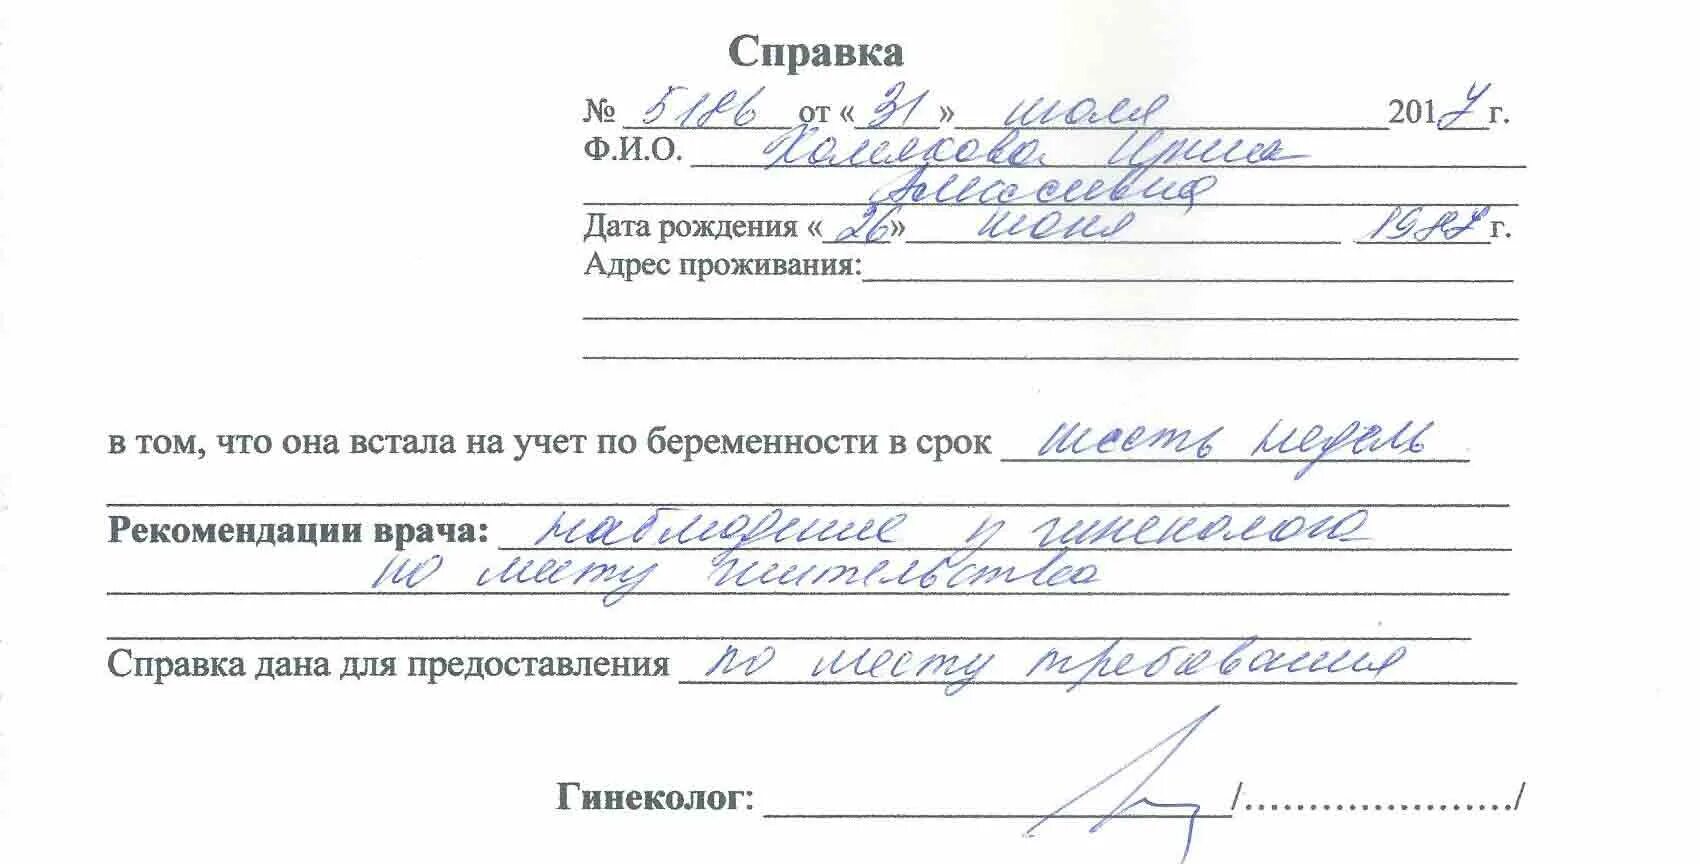 Справка
№ 5186 от «31» июля 2017 г.
Ф.И.О. Хомякова Ирина
Дата рождения «26» июня 1987 г.
Адрес проживания:
в том, что она встала на учет по беременности в срок шесть недель
Рекомендации врача: наблюдение у гинеколога
по месту жительства
Справка дана для предоставления по месту требования
Гинеколог: /...................../